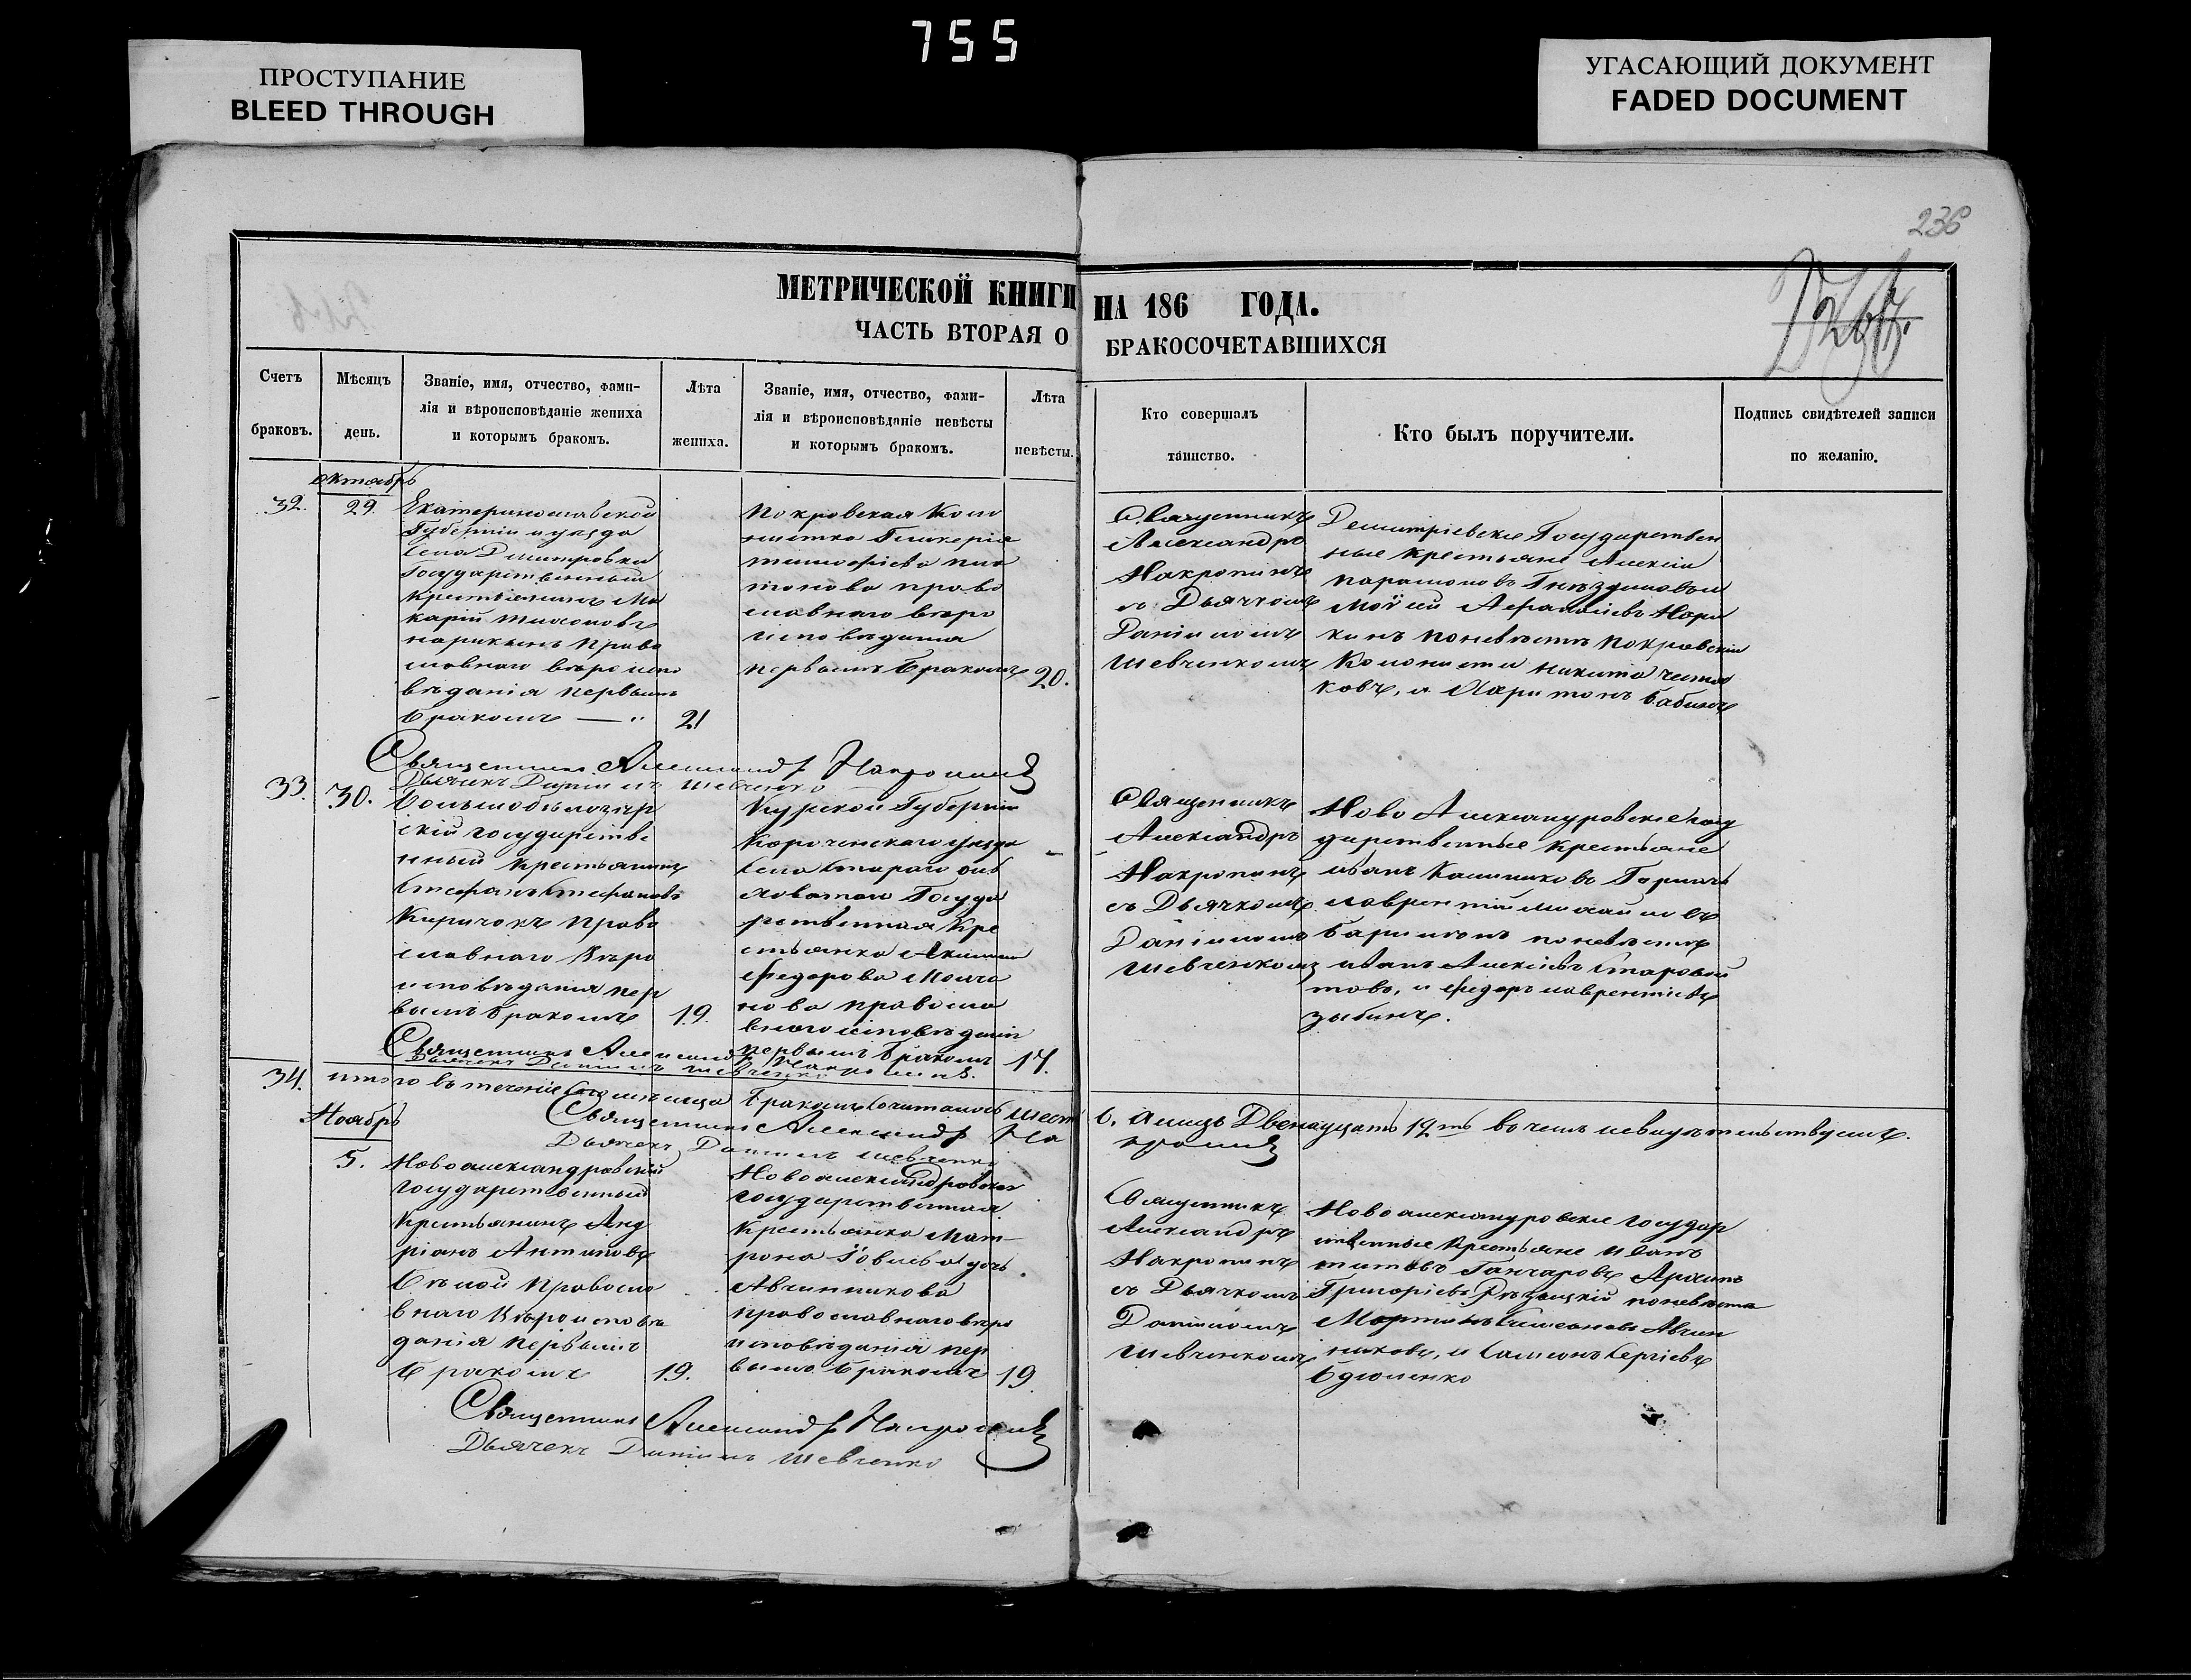 755
ПРОСТУПАНИЕ
BLEED THROUGH
УГАСАЮЩИЙ ДОКУМЕНТ
FADED DOCUMENT
236
МЕТРИЧЕСКОЙ КНИГИ НА 186 ГОДА.
ЧАСТЬ ВТОРАЯ О БРАКОСОЧЕТАВШИХСЯ
Счетъ браковъ.
Мѣсяцъ день.
Званіе, имя, отчество, фами-
лія и вѣроисповѣданіе жениха
и которымъ бракомъ.
Лѣта жениха.
Званіе, имя, отчество, фами-
лія и вѣроисповѣданіе невѣсты
и которымъ бракомъ.
Лѣта невѣсты.
Кто совершалъ
таинство.
Кто былъ поручители.
Подпись свидѣтелей записи
по желанію.
октябрь
32.
29.
Екатеринославской
Губерніи и уѣзда
села Дмитровки
Государственный
Крестьянинъ Ма
карій
православ
наго вѣроиспо
вѣданія первымъ
бракомъ — "
21
Покровская Коло
нистка Гликерія
Тимофѣева Пла
тонова право
славнаго вѣро
исповѣданія
первымъ бракомъ
20.
Священникъ
Александръ
Накропинъ
съ Дьячкомъ
Даніиломъ
Шевченкомъ
Димитріевскіе Государствен
ные крестьяне Алексій
Парамоновъ
Нари
кинъ поневѣстѣ Покровскіи
Колонисти Никита
ковъ, и Харитонъ Бабинъ
Священникъ Александръ Накропинъ
Дьячекъ Даніилъ Шевченко
33.
30.
Большобѣлозер
скій государстве
нный Крестьянинъ
Стефанъ Стефановъ
Киричокъ Право
славнаго Вѣро
исповѣданія пер
вымъ бракомъ
19.
Курской Губерніи
Короченскаго уѣзда
села Стараго
Госуда
рственная Кре
стьянка
Федорова Молча
нова правосла
внаго исповѣданія
первымъ бракомъ
17.
Священникъ
Александръ
Накропинъ
съ Дьячкомъ
Даніиломъ
Шевченкомъ
Ново Александровскіе госу
дарственные Крестьяне
Иванъ Калинниковъ
Лаврентій Михайловъ
поневѣстѣ
Иванъ Алексіевъ Старовой
товъ, и Федоръ Лаврентіевъ
Зыбинъ.
Священникъ Александръ Накропинъ
Дьячекъ Даніилъ Шевченко
34.
итого въ теченіе сего мѣсяца бракомъ сочитаlось шест 6. а лицъ Двенадцать 12ть въ чемъ и свидѣтельствуемъ.
Священникъ Александръ Накропинъ
Дьячекъ Даніилъ Шевченко
Ноябрь
5.
Новоалександровскій
государственный
Крестьянинъ Анд
ріанъ Антиповъ
Бѣлой Правосла
внаго Вѣроисповѣ
данія первымъ
бракомъ
19.
Новоалександровская
государственная
Крестьянка Мат
рона Іовлева дочь
Авчинникова
православнаго вѣро
исповѣданія пер
вымъ бракомъ
19
Священникъ
Александръ
Накропинъ
съ Дьячкомъ
Даніиломъ
Шевченкомъ
Новоалександровскіе государ
ственные Крестьяне Иванъ
Титовъ Ганчаровъ Архипъ
Григоріевъ поневѣста
Мартинъ Симеоновъ Авчин
никовъ, и Самсонъ Сергіевъ
Священникъ Александръ Накропинъ
Дьячекъ Даніилъ Шевченко